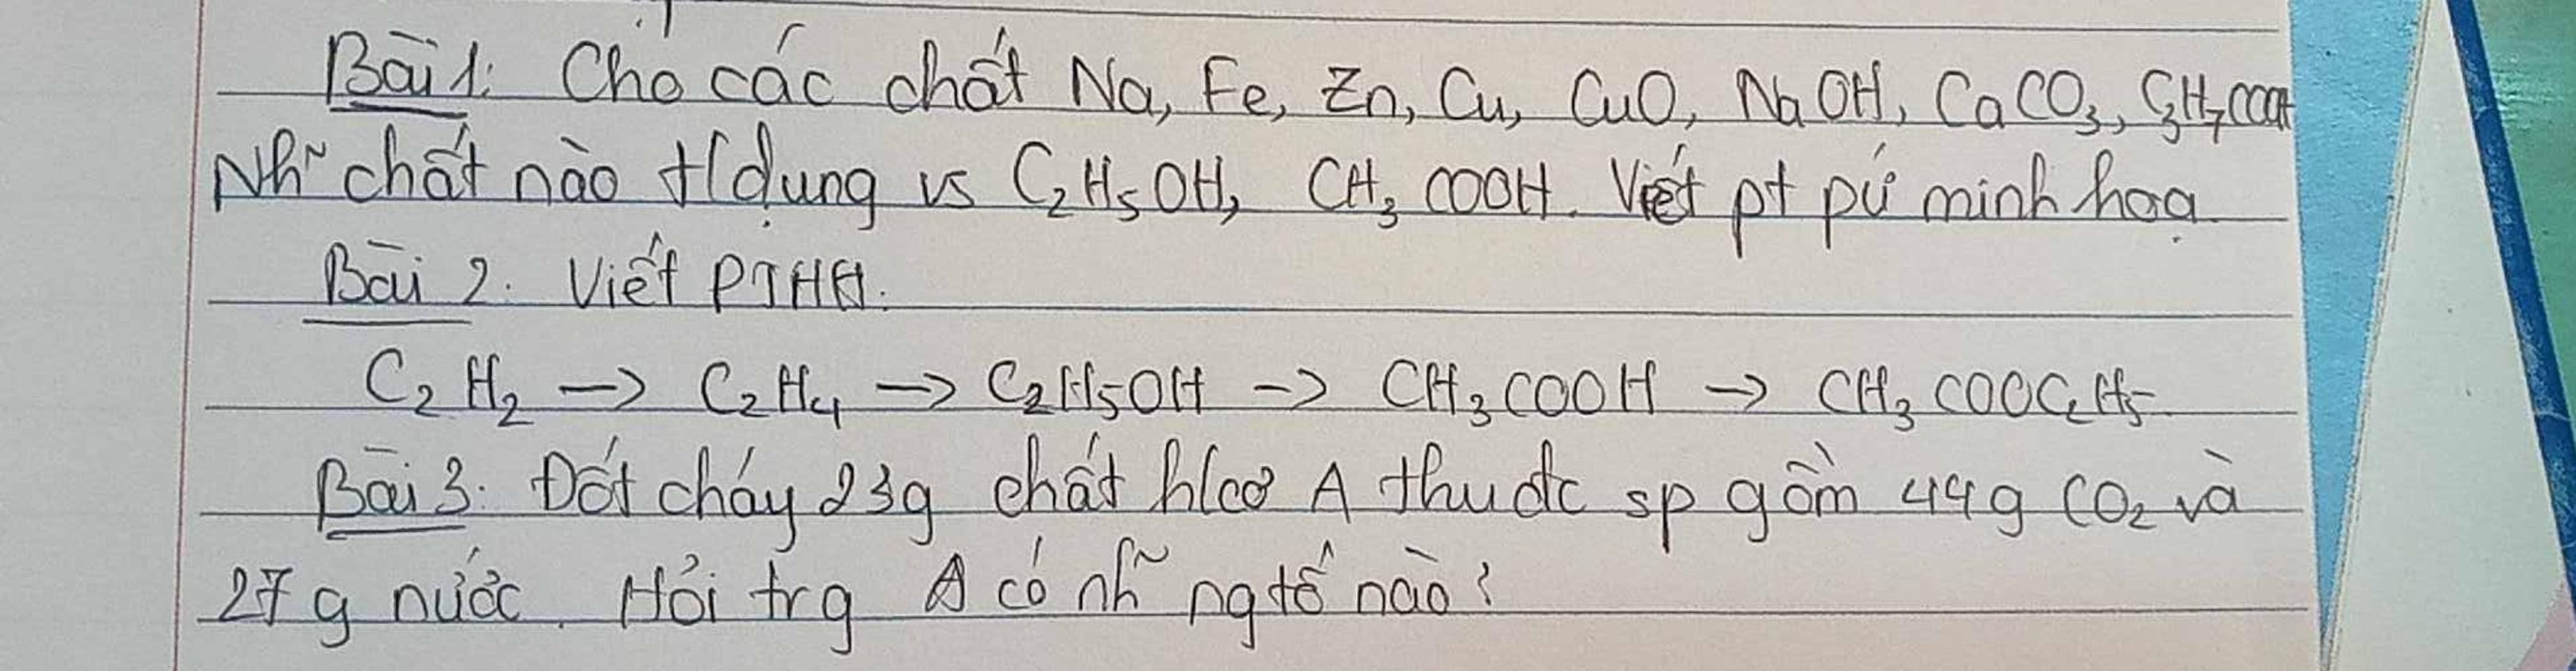 Bài 1: Cho các chất Na, Fe, Zn, Cu, CuO, NaOH, CaCO₃, C₃H₇COOH
Nh~ chất nào t/dụng vs C₂H₅OH, CH₃COOH. Viết pt pứ minh hoạ.
Bài 2. Viết PTHH.
C₂H₂ -> C₂H₄ -> C₂H₅OH -> CH₃COOH -> CH₃COOC₂H₅
Bài 3. Đốt cháy 23g chất h/cơ A thu đc sp gồm 44g CO₂ và
27g nước. Hỏi trg A có nh~ ng tố nào?